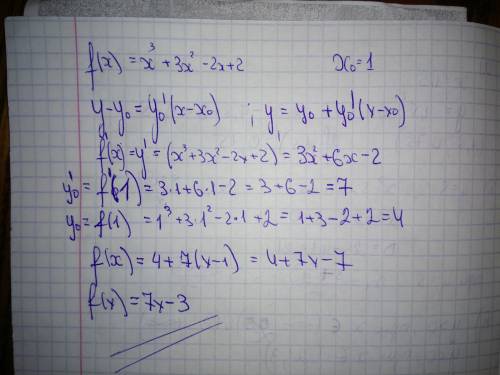 f(x) = x³ + 3x² - 2x + 2 x₀ = 1
y - y₀ = y₀'(x - x₀) ; y = y₀ + y₀'(x - x₀)
f'(x) = y' = (x³ + 3x² - 2x + 2)' = 3x² + 6x - 2
y₀' = f'(1) = 3·1 + 6·1 - 2 = 3 + 6 - 2 = 7
y₀ = f(1) = 1³ + 3·1² - 2·1 + 2 = 1 + 3 - 2 + 2 = 4
f(x) = 4 + 7(x - 1) = 4 + 7x - 7
f(x) = 7x - 3